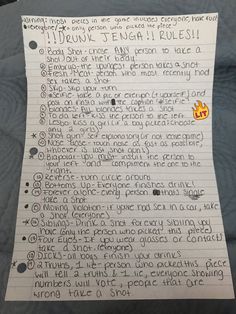 Warning: most pieces in the game involves everyone, have fun!
* (everyone) for only person who picked the piece *
!!!DRUNK JENGA!! RULES!!
① Body Shot - chose ANY person to take a
shot (out of their body)
② Embryo - the youngest person takes a shot
③ Fresh Meat - person who most recently had
sex takes a shot
④ Skip - Skip ur turn.
⑤ Selfie - take a pic of everyone (& yourself) and
post on insta w/ the caption "#Selfie"
⑥ Blondes - All blondes takes a shot
⑦ To da left - kiss the person to the left
⑧ Lesbo - kiss a girl (if a guy picked, chooses
any 2 girls)
⑨ Shot gun - self explanatory (or not everyone)
⑩ Nose Goes - touch nose as fast as possible,
whoever is last shot guns
⑪ Biapolar - U must insult the person to
your left and compliment the one to
the right.
⑫ Reverse - turn circle around
⑬ Bottoms Up - Everyone finishes drink!
⑭ Forever alone - every person thats Single
take a Shot
⑮ Moving Violation - if youve had sex in a car, take
a shot. (everyone)
⑯ Siblings - Drink a shot for every sibling you
have (only the person who picked this piece)
⑰ Four Eyes - If you wear glasses or contacts
take a shot. (everyone)
⑱ DICKS - all boys finish your drinks
⑲ 2 Truths, 1 lie - person who picked this piece
will tell 2 truths & 1 lie, everyone showing
numbers will vote, people that are
wrong take a shot
LIT